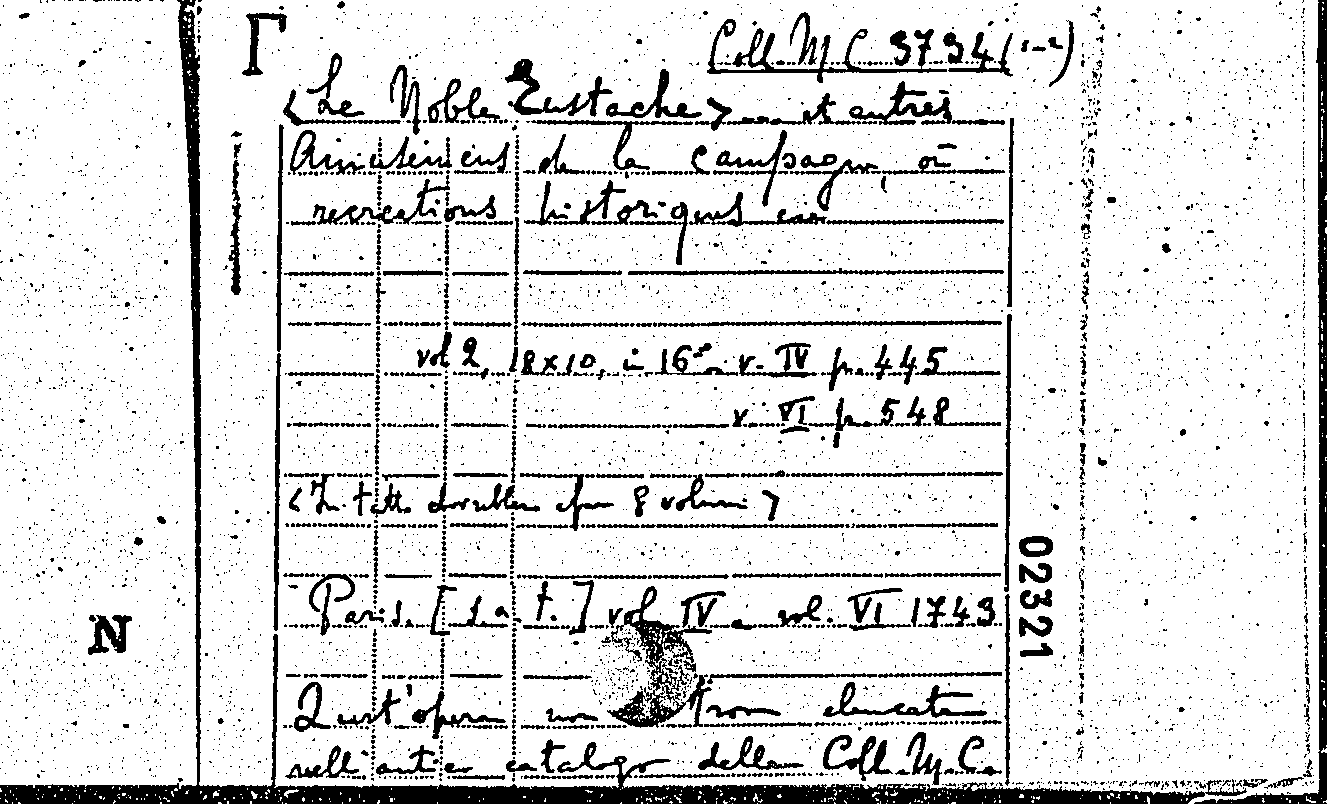 Γ
Coll. M C 3734 (1-2)
<Le Noble Eustache> ... et autres
Amusemens de la campagne, ou
recreations historiques
vol 2, 18x10, in 16° v. IV p. 445
v. VI p. 548
<In tutto dovrebbero esser 8 volumi>
Paris. [s.a.t.] vol IV e vol. VI 1743
N
02321
Quest'opera non trova elencata
nell'antico catalogo della Coll. M. C.